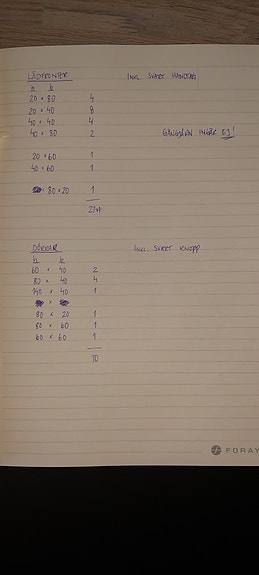 LÅDFRONTER INKL. SVART HANDTAG
h b
20 × 80 4
20 × 40 8
40 × 40 4
40 × 80 2
GÅNGJÄRN INGÅR EJ!
20 × 60 1
40 × 60 1
80 × 20 1
21 st
DÖRRAR INKL. SVART KNOPP
h b
60 × 40 2
80 × 40 4
140 × 40 1
×
80 × 20 1
80 × 60 1
60 × 60 1
10
FORAY